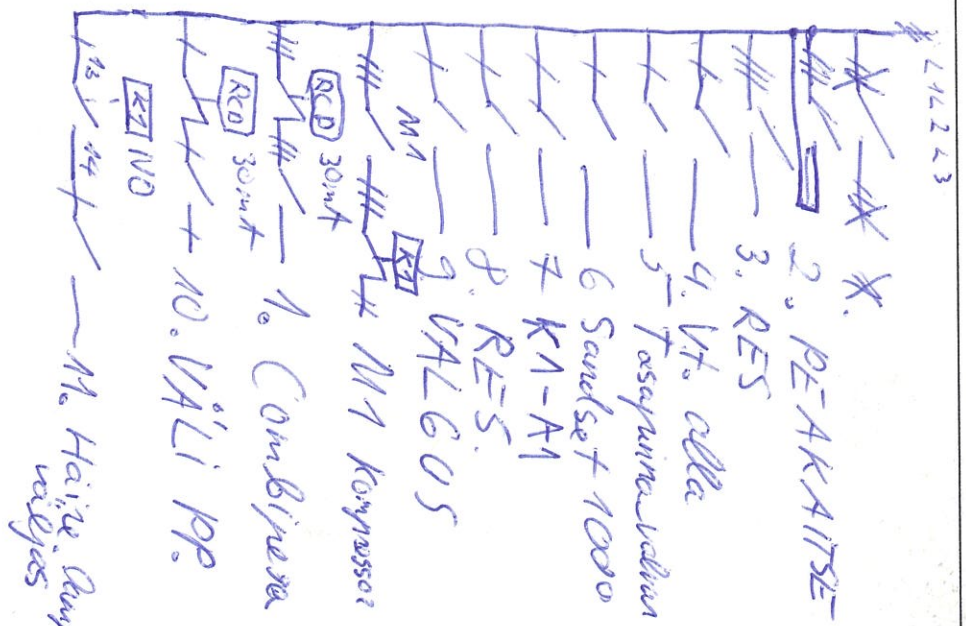 L1L2L3
X.
2. PEAKAITSE
3. RES
4. Vt. alla
5 Tasapinna
6 Sandset 1000
7 K1-A1
8. RES.
9 VALGUS
M1
K1
M1 Kompressor
RCD 30mA
1. Combipesa
RCD 30mA
10. VÄLI PP.
K1 NO
13 14
11. Häire.
väljas